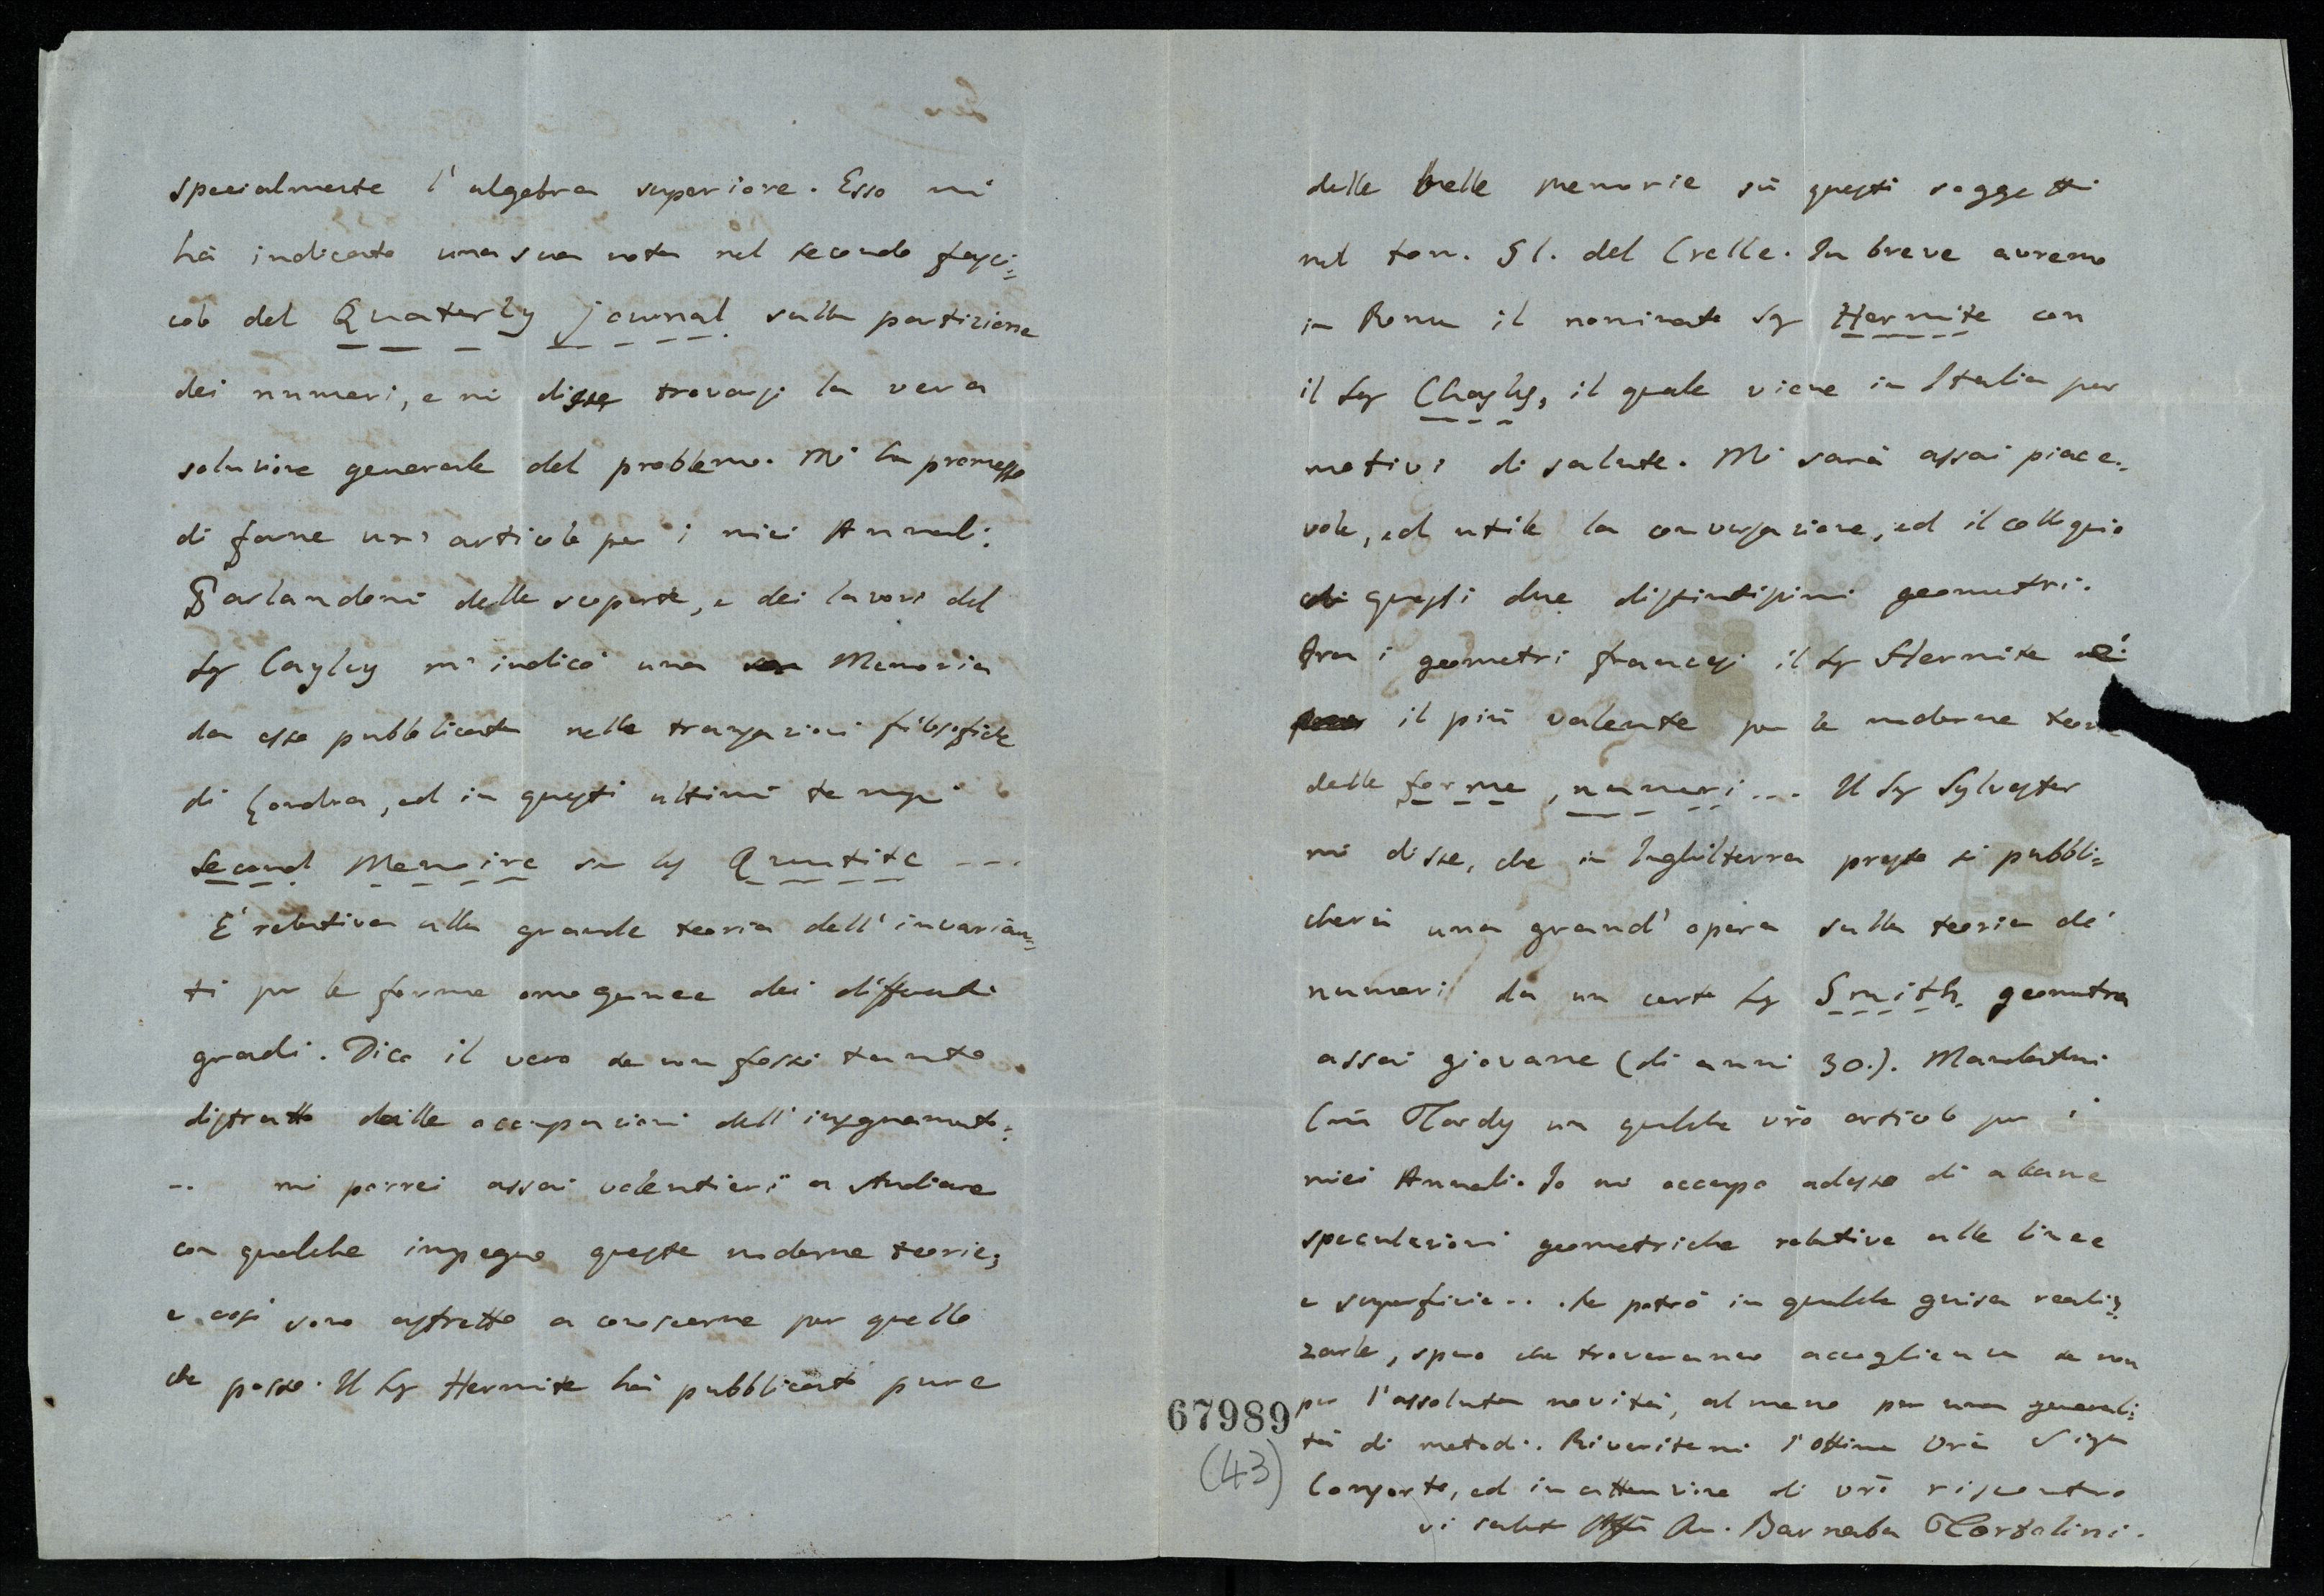 specialmente l'algebra superiore. Esso mi
hà indicato una sua nota nel secondo fasci=
colo del Quaterly journal sulla partizione
dei numeri, e mi disse trovarsi la vera
soluzione generale del problema. Mi ha promesso
di farne un' articolo per i miei Annali.
Parlandomi delle scoperte, e dei lavori del
Sig Cayley m' indicò una Memoria
da esso pubblicata nelle transazioni filosofiche
di Londra, ed in questi ultimi tempi
Second Memoire su les Quantite ---
E' relativa alla grande teoria dell' invarian=
ti per le forme omogenee dei differenti
gradi. Dico il vero se non fossi tanto
distratto dalle occupazioni dell' insegnamento
.. mi porrei assai volentieri a studiare
con qualche impegno queste moderne teorie;
e così sono astretto a conoscerne per quello
che posso. Il Sig Hermite hà pubblicato pure
delle belle memorie sù questi soggetti
nel tom. 51. del Crelle. In breve avremo
in Roma il nominato Sig Hermite con
il Sig Chasles, il quale viene in Italia per
motivi di salute. Mi sarà assai piace=
vole, ed utile la conversazione, ed il colloquio
di questi due distintissimi geometri.
Fra i geometri francesi il Sig Hermite è
il più valente per le moderne teorie
delle forme, numeri... Il Sig Sylvester
mi disse, che in Inghilterra presto si pubbli=
cherà una grand' opera sulla teoria de'
numeri da un certo Sig Smith geometra
assai giovane (di anni 30.). Mandatemi
Caro Tardy un qualche vrõ articolo per i
miei Annali. Io mi occupo adesso di alcune
speculazioni geometriche relative alle linee
e superficie... Se potrò in qualche guisa realiz=
zarle, spero che troveranno accoglienza se non
per l'assoluta novità, almeno per una generali=
tà di metodi. Riveritemi l'ottima vrã Siga
Consorte, ed in attenzione di vrõ riscontro
vi saluto Aff. Am. Barnaba Tortolini.
67989
(43)